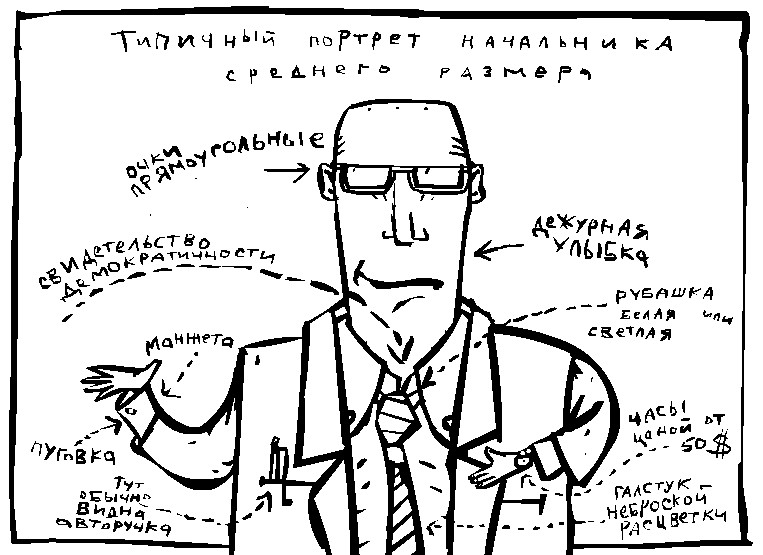 Типичный портрет начальника
среднего размера
очки
прямоугольные
свидетельство
демократичности
дежурная
улыбка
рубашка
белая или
светлая
манжета
пуговка
тут
обычно
видна
авторучка
часы
ценой от
50$
галстук
неброской
расцветки